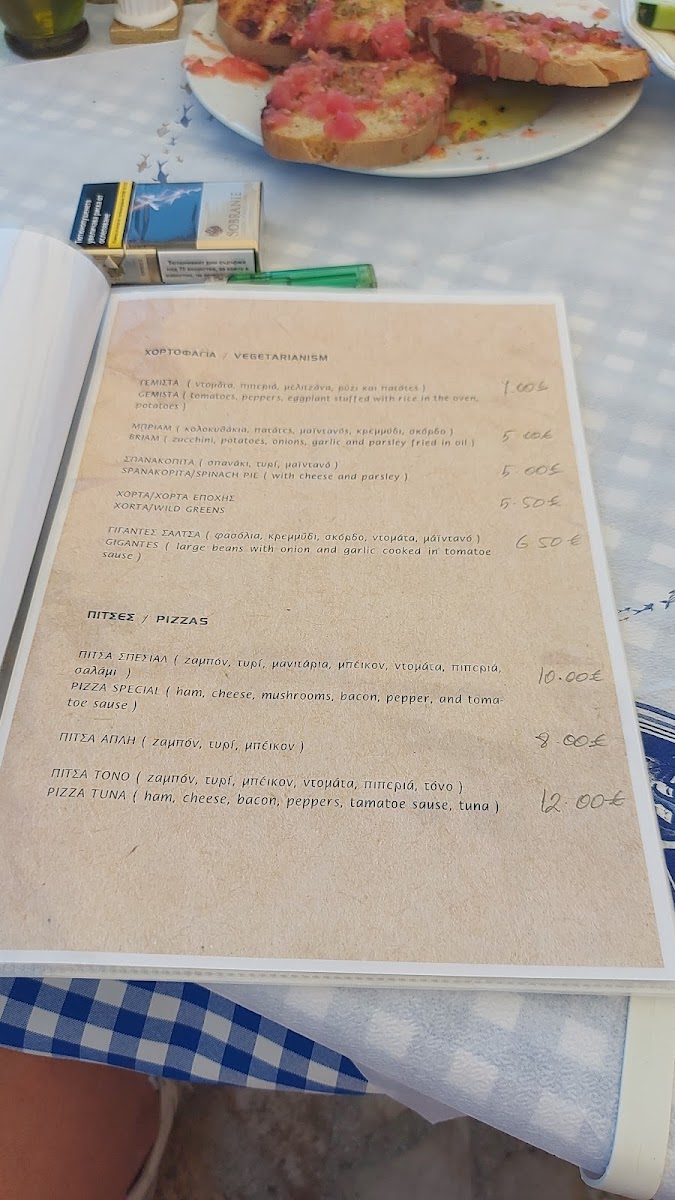 SOBRANIE
Тютюнопушенето
увеличава риска от
ослепяване
ΧΟΡΤΟΦΑΓΙΑ / VEGETARIANISM
ΓΕΜΙΣΤΑ ( ντομάτα, πιπεριά, μελιτζάνα, ρύζι και πατάτες ) 7.00€
GEMISTA ( tomatoes, peppers, eggplant stuffed with rice in the oven,
potatoes )
ΜΠΡΙΑΜ ( κολοκυθάκια, πατάτες, μαϊντανός, κρεμμύδι, σκόρδο ) 5.00€
BRIAM ( zucchini, potatoes, onions, garlic and parsley fried in oil )
ΣΠΑΝΑΚΟΠΙΤΑ ( σπανάκι, τυρί, μαϊντανό ) 5.00€
SPANAKOPITA/SPINACH PIE ( with cheese and parsley )
ΧΟΡΤΑ/ΧΟΡΤΑ ΕΠΟΧΗΣ 5.50€
XORTA/WILD GREENS
ΓΙΓΑΝΤΕΣ ΣΑΛΤΣΑ ( φασόλια, κρεμμύδι, σκόρδο, ντομάτα, μάϊντανό ) 6.50€
GIGANTES ( large beans with onion and garlic cooked in tomatoe
sause )
ΠΙΤΣΕΣ / PIZZAS
ΠΙΤΣΑ ΣΠΕΣΙΑΛ ( ζαμπόν, τυρί, μανιτάρια, μπέικον, ντομάτα, πιπεριά,
σαλάμι ) 10.00€
PIZZA SPECIAL ( ham, cheese, mushrooms, bacon, pepper, and toma-
toe sause )
ΠΙΤΣΑ ΑΠΛΗ ( ζαμπόν, τυρί, μπέικον ) 8.00€
ΠΙΤΣΑ ΤΟΝΟ ( ζαμπόν, τυρί, μπέικον, ντομάτα, πιπεριά, τόνο )
PIZZA TUNA ( ham, cheese, bacon, peppers, tamatoe sause, tuna ) 12.00€